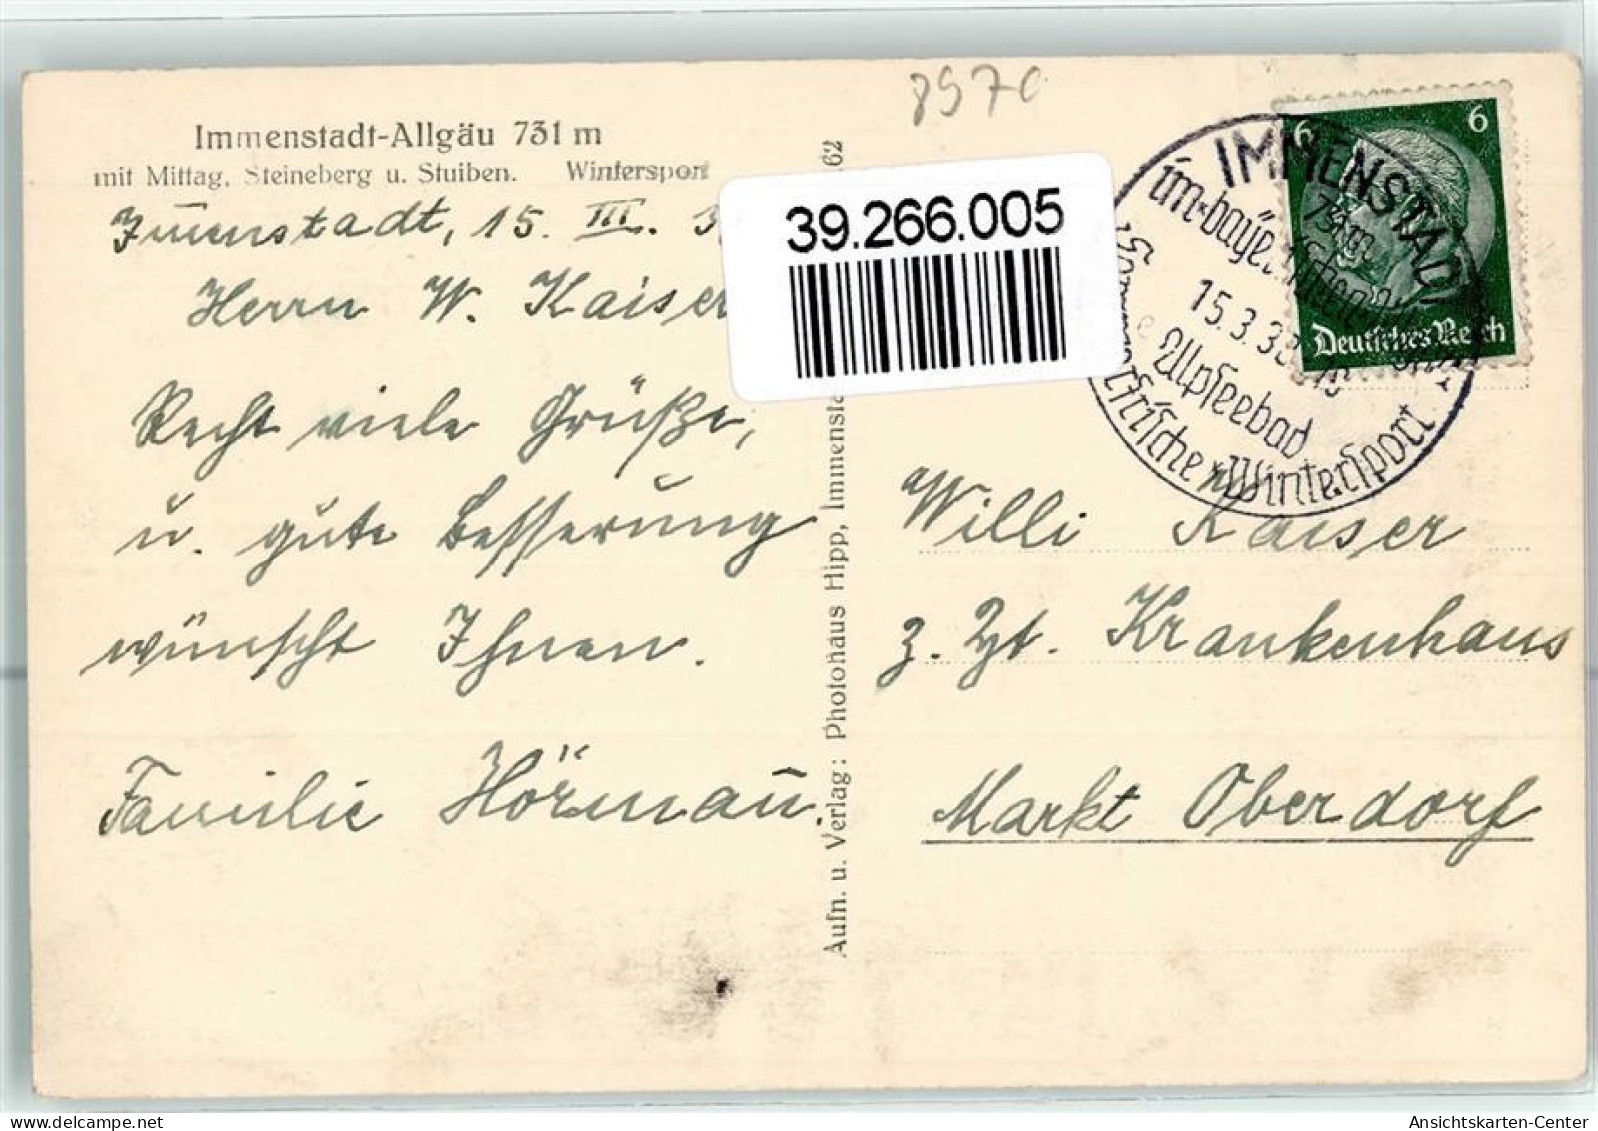 8970
Immenstadt-Allgäu 731 m
mit Mittag, Steineberg u. Stuiben. Wintersport
Immenstadt, 15. III.
Herrn W. Kaiser
Recht viele Grüße,
u. gute Besserung
wünscht Ihnen.
Familie Hörmann.
Aufn. u. Verlag: Photohaus Hipp, Immensta
62
39.266.005
IMMENSTADT
731 m
im bayer.
15.3.38
Alpseebad
Sommerfrische Wintersport
6 6
Deutsches Reich
Willi Kaiser
z. Zt. Krankenhaus
Markt Oberdorf
Ansichtskarten-Center